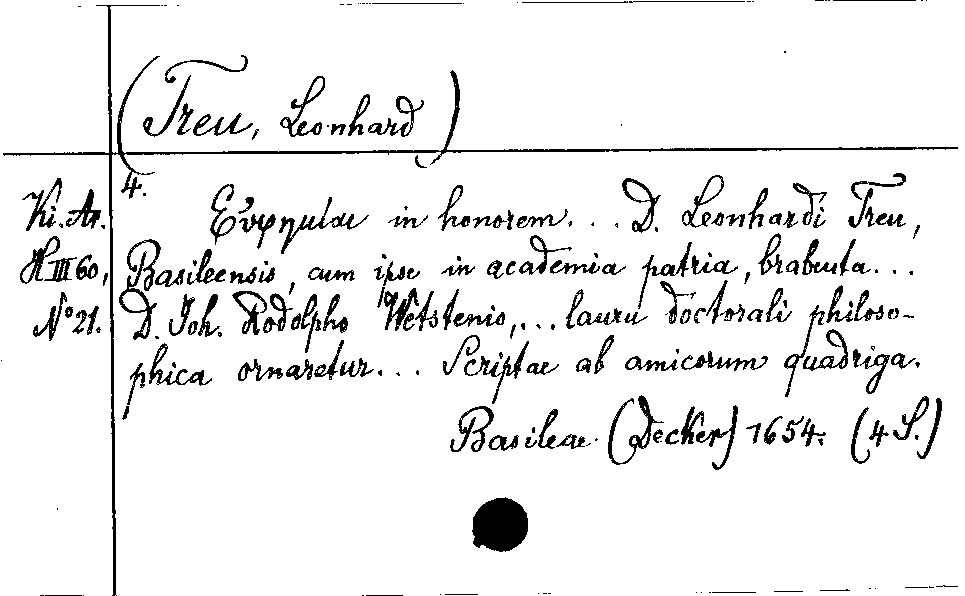 (Treu, Leonhard)
Ki. Ar. H III 60, No 21.
4.
in honorem... D. Leonhardi Treu,
Basileensis, cum ipse in academia patria, brabeuta...
D. Joh. Rodolpho Wetstenio,... lauru doctorali philoso-
phica ornaretur... Scriptae ab amicorum quadriga.
Basileae (Decker) 1654. (4 S.)